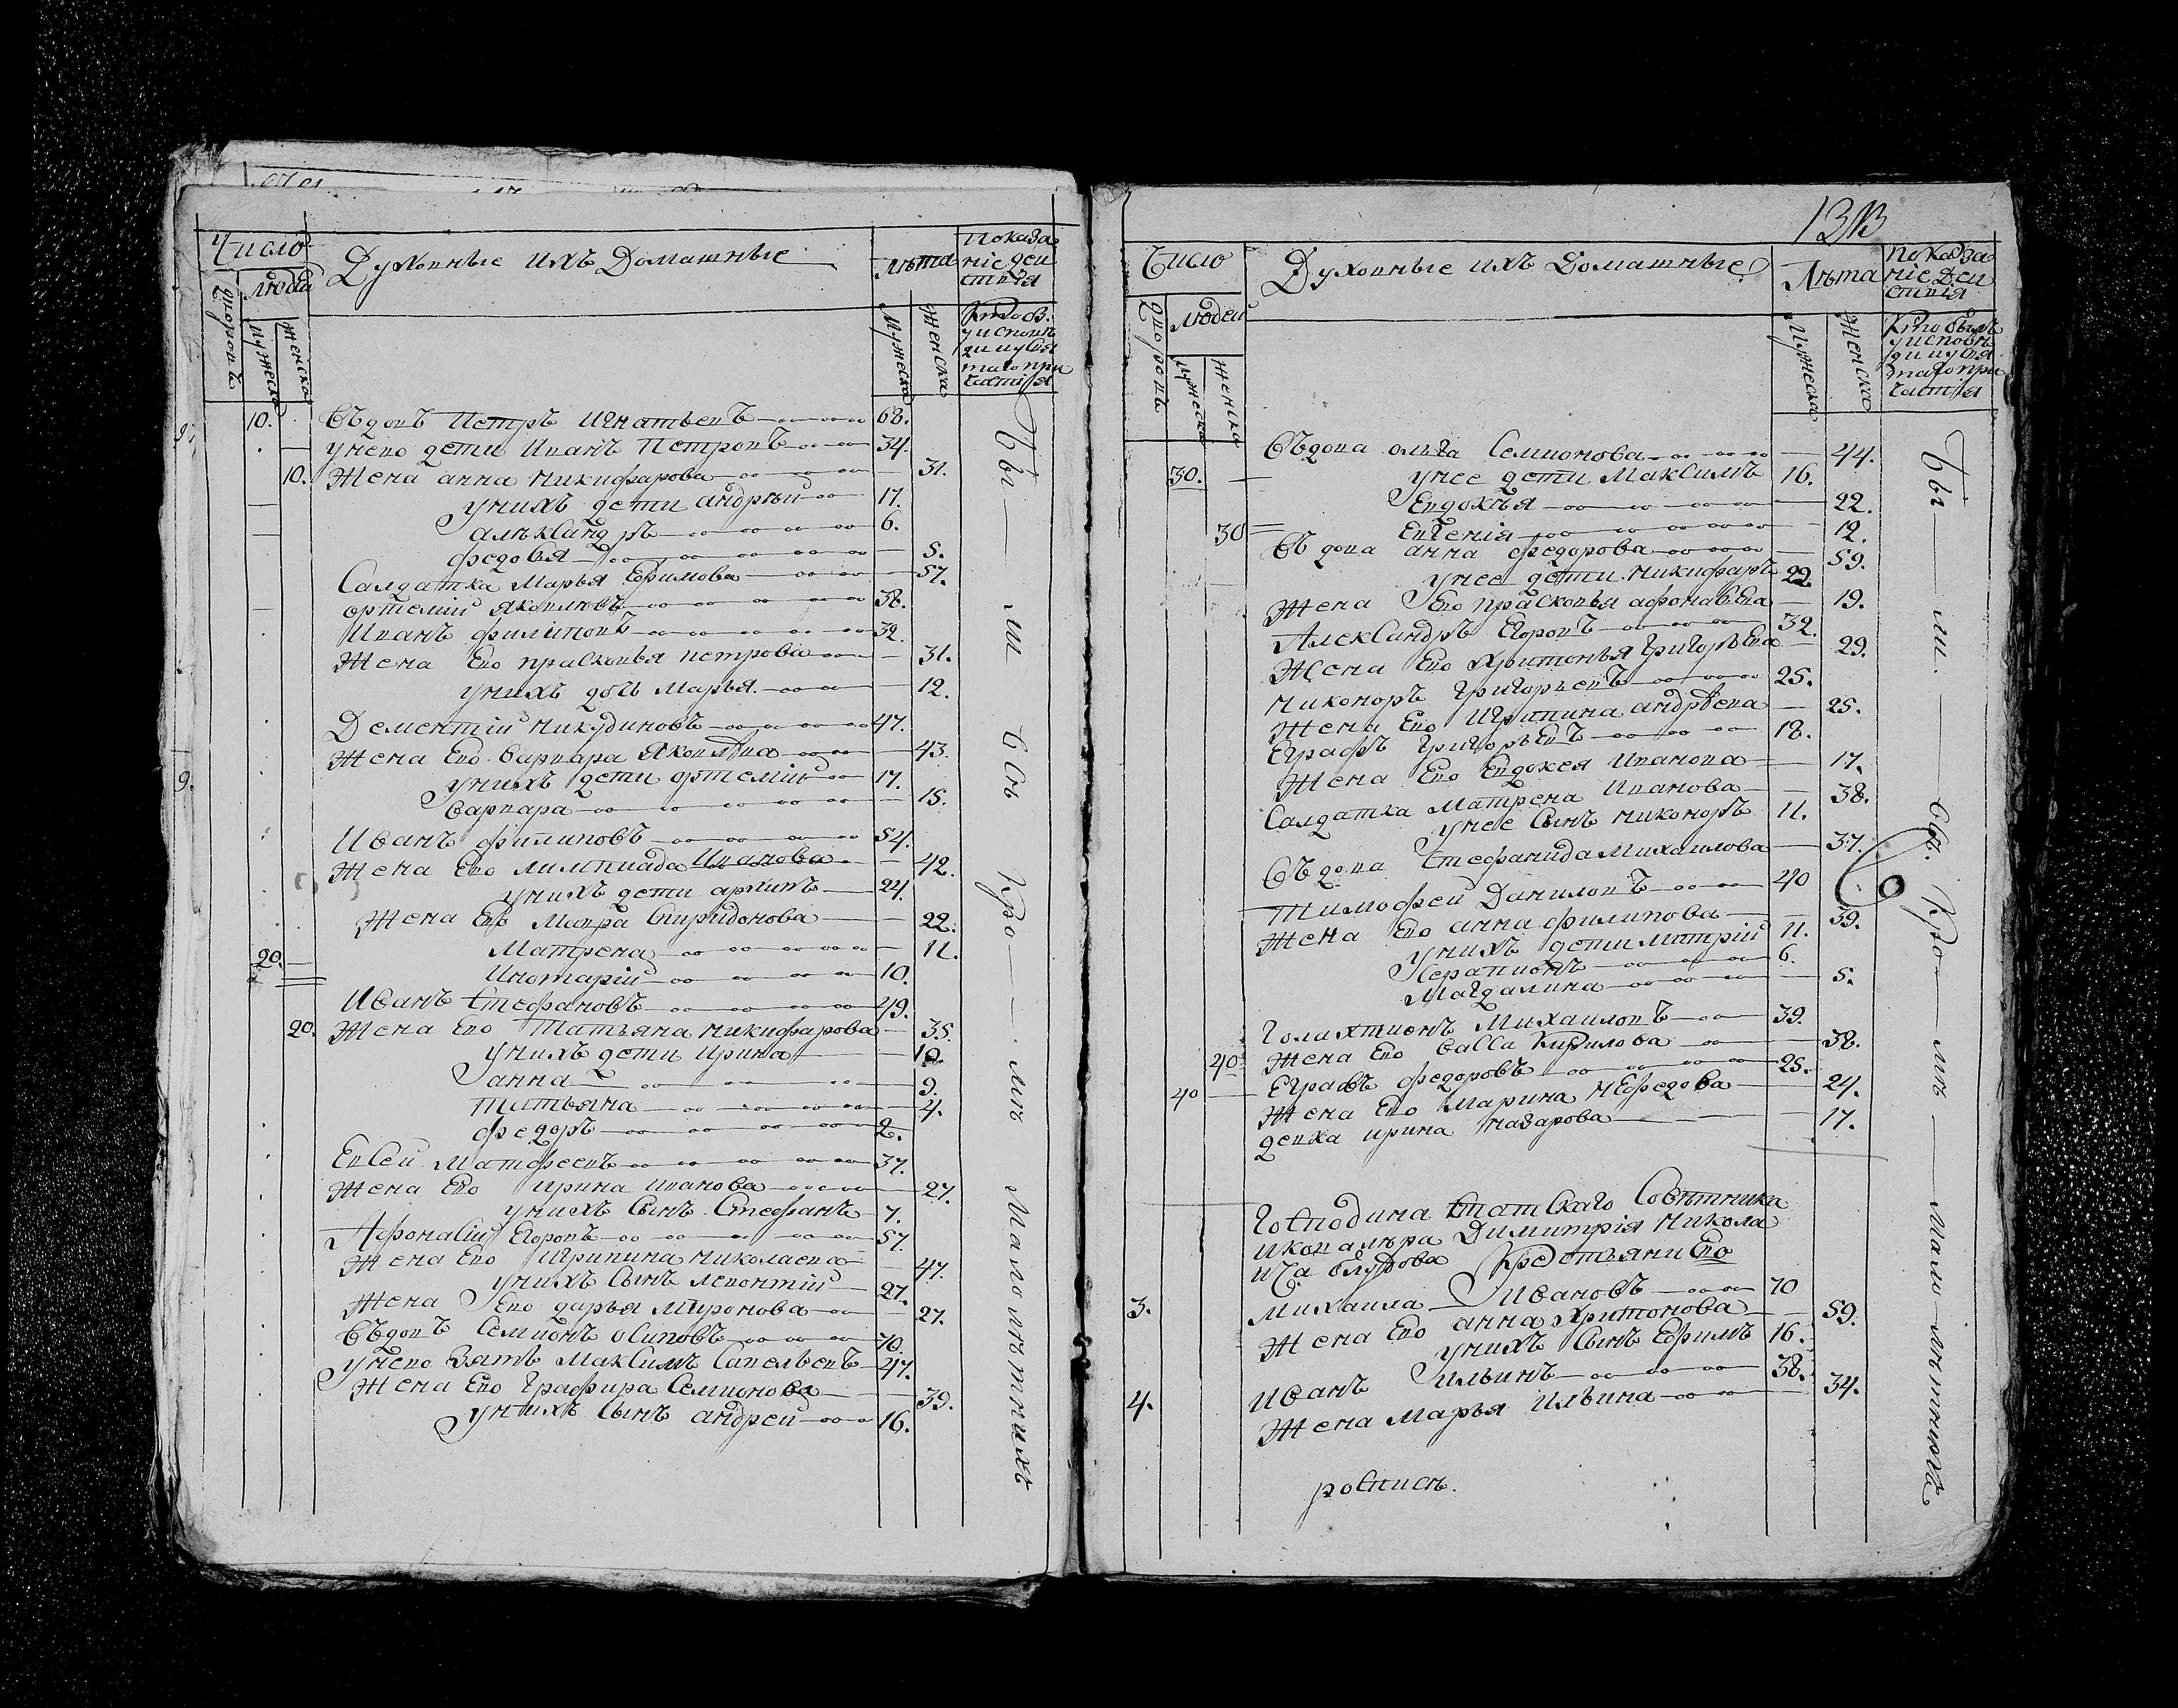 Число
Духовные ихъ Домашные
Лѣта
Показа
ніе деи
ствія
дворовъ
людеи
мужеска
женска
Мужеска
Женска
Кто бы.
у испове
ди и у свя
таго при
частія
10.
Въдовъ Петръ Игнатьевъ 68.
у него дети Иванъ Петровъ 34.
10. Жена анна никифарова 31.
у нихъ дети андрѣи 17.
алѣксандръ 6.
федосья 5.
Салдатка Марья Ефимова 57.
ортемии яковлевъ 38.
Иванъ филиповъ 32.
Жена Ево прасковья петрова 31.
у нихъ дочь Марья 12.
Дементии никудиновъ 47.
Жена Ево варвара Яковлева 43.
9.
у нихъ дети ортемии 17.
варвара 15.
Иванъ филиповъ 54.
Жена Ево лимпиада Иванова 42.
у нихъ дети архипъ 24.
Жена Ево Мавра Спиридонова 22.
Матрена 11.
20.
10.
Иванъ Стефановъ 49.
20. Жена Ево Татьяна никифарова 35.
у нихъ дети ирина 10.
анна 9.
Татьяна 4.
федоръ 2.
Евсеи Матфеевъ 37.
Жена Ево Ирина иванова 27.
у нихъ Сынъ Стефанъ 7.
Афонасии Егоровъ 57.
Жена Ево Игрипина николаева 47.
у нихъ Сынъ левонтии 27.
Жена Ево дарья Миронова 27.
Въдовъ Семионъ осиповъ 70.
у него Зять Максимъ Савельевъ 47.
Жена Ево Графира Семионова 39.
у нихъ Сынъ андреи 16.
Бы ли всѣ Кро мѣ Малолѣтнихъ
13
Число
Духовные ихъ Домашные
Лѣта
Показа
ніе Деи
ствія
дворовъ
людеи
мужеска
женска
Мужеска
Женска
Кто былъ
у испове
ди и у свя
таго при
частія
Въдова ольга Семионова 44.
30. у нее дети Максимъ 16.
Евдокѣя 22.
30 Евгенія 12.
Въдова анна федорова 59.
у нее дети никифаръ 22
Жена Ево прасковья афонавЕва 19.
Александръ Егоровъ 32.
Жена Ево Хритонья ГригорьЕва 29.
никоноръ Григорьевъ 25.
Жена Ево Игрипина андрѣева 25.
Еграфъ ГригорьЕвъ 18.
Жена Ево Евдокея Иванова 17.
Салдатка Матрена Иванова 38.
у нее Сынъ никоноръ 11.
Въдова Стефанида Михаилова 37.
Тимофеи Даниловъ 40
Жена Ево анна филипова 39.
у нихъ дети митрии 11.
Серапионъ 6.
Магдалина 5.
Голахтионъ Михаиловъ 39.
40 Жена Ево васса Кирилова 38.
40 Еграфъ федоровъ 25.
Жена Ево Марина неФедова 24.
девка ирина назарова 17.
Господина Статскаго Советника
и кавалѣра Димитрія никола
Крестьяни Ево
3. Михаила Ивановъ 70
Жена Ево анна Хритонова 59.
у нихъ Сынъ Ефимъ 16.
4. Иванъ Ильинъ 38.
Жена Марья Ильина 34.
роспись.
Бы ли. всѣ. Кро мѣ мало лѣтнихъ